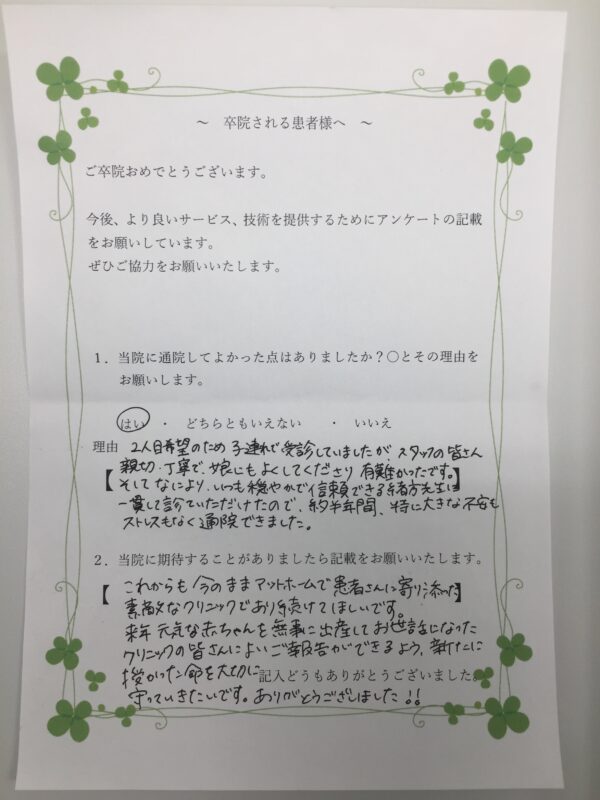 ～ 卒院される患者様へ ～
ご卒院おめでとうございます。
今後、より良いサービス、技術を提供するためにアンケートの記載
をお願いしています。
ぜひご協力をお願いいたします。
１．当院に通院してよかった点はありましたか？○とその理由を
お願いします。
はい ・ どちらともいえない ・ いいえ
理由 2人目希望のため子連れで受診していましたが、スタッフの皆さん
親切・丁寧で、娘にもよくしてくださり有難かったです。
【そしてなにより、いつも穏やかで信頼できる緒方先生に】
一貫して診ていただけたので、約半年間、特に大きな不安も
ストレスもなく通院できました。
２．当院に期待することがありましたら記載をお願いいたします。
【これからも今のままアットホームで患者さんに寄り添った】
素敵なクリニックであり続けてほしいです。
来年元気な赤ちゃんを無事に出産してお世話になった
クリニックの皆さんによいご報告ができるよう、新たに
授かった命を大切に
記入どうもありがとうございました。
守っていきたいです。ありがとうございました!!